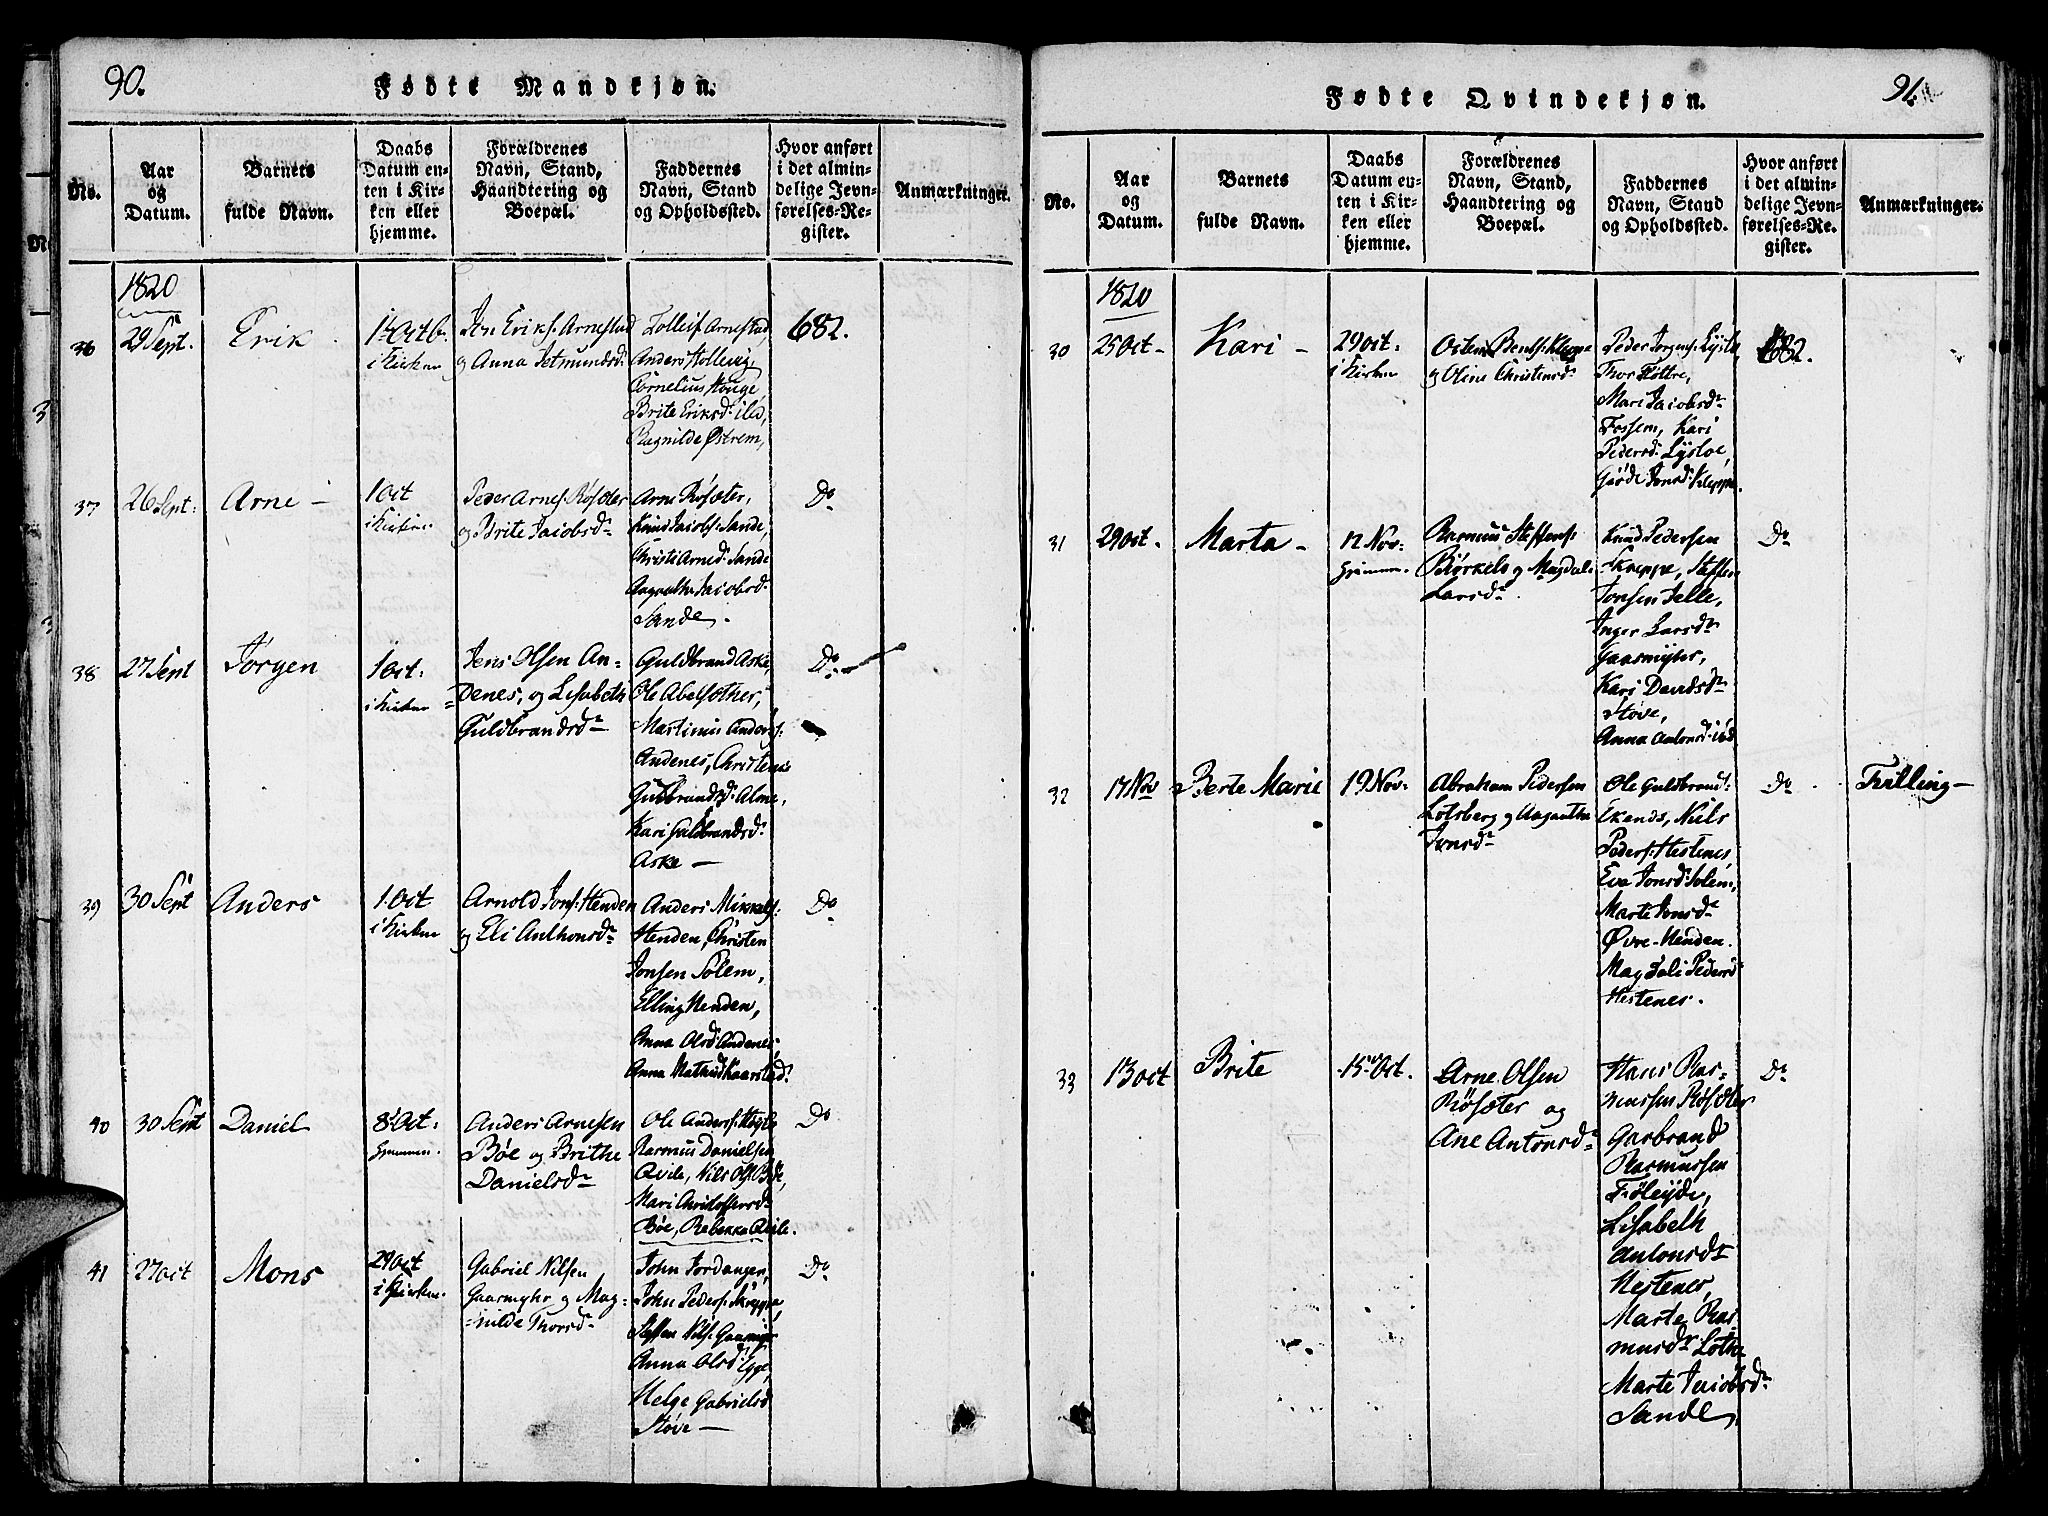 90.
Fødte Mandkjøn.
No.
Aar
og
Datum.
Barnets
fulde Navn.
Daabs
Datum en-
ten i Kir-
ken eller
hjemme.
Forældrenes
Navn, Stand,
Haandtering og
Boepæl.
Faddernes
Navn, Stand
og Opholdssted.
Hvor anført
i det almin-
delige Jevn-
førelses-Re-
gister.
Anmærkninger.
1820
36
29 Sept.
Erik
1 Octb.
i Kirken
Jon Eriks: Arnestad
og Anna
Tolleif Arnestad,
Anders
Cornelius Houge,
Brite Eriksd:
Ragnilde Østrem,
682.
37
26 Sept:
Arne —
1 Oct
i Kirken.
Peder Arnes: Røsæter
og Brite Jacobsd:
Arne Røsæter,
Knud Jacobs: Sande,
Christi Arnesd: Sande
Jacobsd:
Sande.
Do
38
27 Sept
Jørgen
1 Oct.
i Kirken
Jens Olsen An-
denes, og Lisabeth
Guldbrandsd:
Guldbrand Aske,
Ole Abelsæther,
Martinus Anders:
Andenes,
Guldbrandsd: Alme,
Kari Guldbrandsd:
Aske —
Do
39
30 Sept
Anders
1. Oct
i Kirken
Arnold Jons: Henden
og Eli Anthonsd:
Anders Mikkels:
Henden, Christen
Jonsen Solem,
Elling Henden,
Anna Olsd: Andenes
Anna Kaarstad.
Do
40
30 Sept
Daniel
8 Oct.
Anders Arnesen
Bøe og Brithe
Danielsd:
Ole Anders:
Rasmus Danielsen
Qvile, Nils Ols: Bøe,
Mari Christoffersd:
Bøe, Rebekka Qvile.
Do
41
27 Oct
Mons
29 Oct
i Kirken.
Gabriel Nilsen
Gaasmyhr og Mag-
nilde Thorsd:
John Jordanger,
John Peders:
Steffen Nils:
Anna Olsd: Egge,
Helge Gabrielsd
Støve —
Do
91.
Fødte Qvindekjøn.
No.
Aar
og
Datum.
Barnets
fulde Navn.
Daabs
Datum en-
ten i Kir-
ken eller
hjemme.
Forældrenes
Navn, Stand,
Haandtering og
Boepæl.
Faddernes
Navn, Stand
og Opholdssted.
Hvor anført
i det almin-
delige Jevn-
førelses-Re-
gister.
Anmærkninger.
1820
30
25 Oct —
Kari —
29 Oct:
i Kirken
Osten Bents: Kleppe
og Oline Christensd:
Peder Jørgens:
Thor
Mari Jacobsd:
Fossem, Kari
Pedersd:
Jonsd: Kleppe.
682.
31
29 Oct.
Marta —
12 Nov:
Rasmus Steffens:
Birkelo og Magdal:
Larsd:
Knud Pedersen
Steffen
Jonsen Jelle,
Inger Larsd:
Gaasmyhr,
Kari Davidsd:
Støve,
Anna Antonsd:
Do
32
17 Nov
Berte Marie
19 Nov:
Abraham Pedersen
Lotsberg og Aagaathe
Jonsd:
Ole Guldbrand:
Ekenæs, Niels
Peders: Hestenes,
Eva Jonsd: Solem,
Marte Jonsd:
Øvre-Henden.
Magdali Pedersd:
Hestenes.
Do
Tvilling —
33
13 Oct
Brite
15 Oct.
Arne Olsen
Røsæter og
Ane Antonsd:
Hans Ras-
mussen Røsæter
Garbrand
Rasmussen
Føleyde,
Lisabeth
Antonsd:
Hestenes,
Marte Ras
musd:
Marte Jacobsd:
Sande,
Do